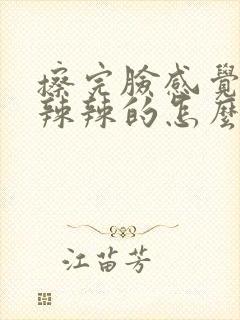 擦完臉感覺
辣辣的怎麼
江苗芳